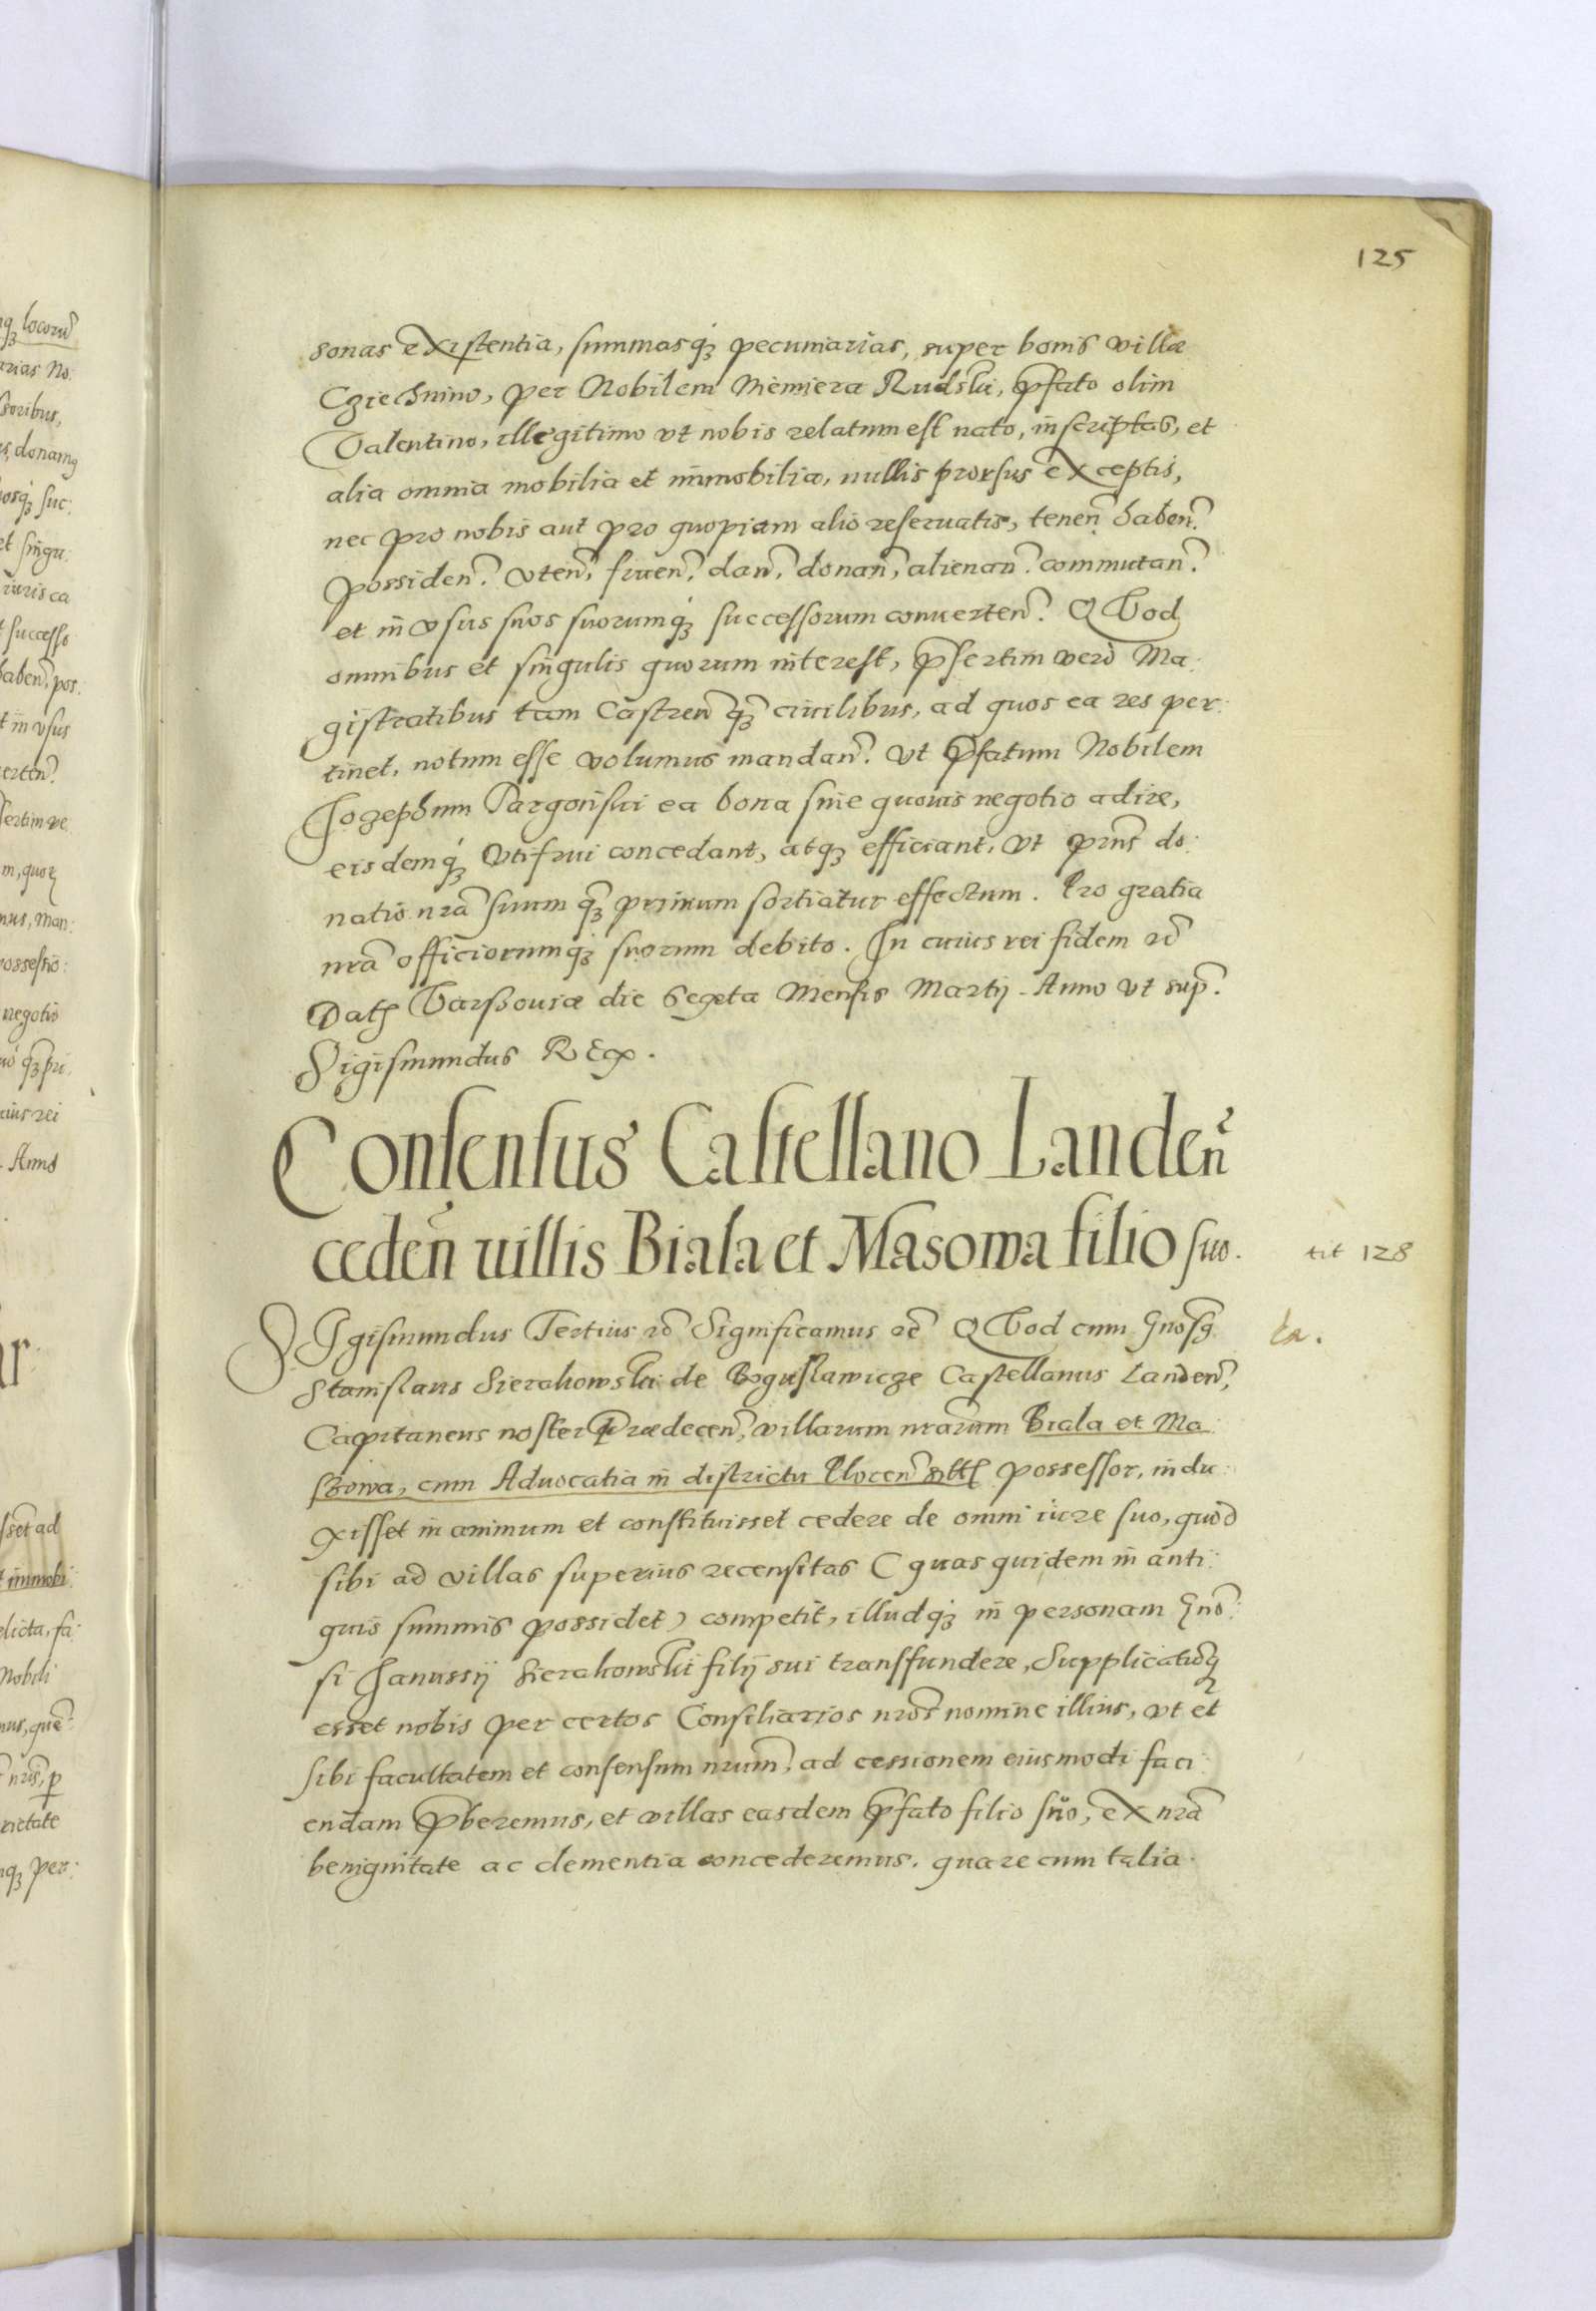 125
sonas existentia, summasq́ꝫ pecuniarias, super bonis villæ
Cziechnino, per Nobilem Niemiera Rudski, p̃fato olim
Valentino, illegitimo vt nobis relatum est nato, inscriptas, et
alia omnia mobilia et immobilia, nullis prorsus exceptis,
nec pro nobis aut pro quopiam alio reseruatis, teneñ habeñ.
Possideñ. vteñ, frueñ, dañ, donañ, alienañ. commutañ.
et in vsus suos suorumq́ꝫ successorum conuerteñ. QVod
omnibus et singulis quorum interest, p̃sertim verò Ma:
gistratibus tam Castreñ q̃ꝫ ciuilibus, ad quos ea res per:
tinet, notum esse volumus mandañ. vt p̃fatum Nobilem
Jozephum Pargowski ea bona sine quouis negotio adire,
eisdemq́ꝫ vtifrui concedant, atqꝫ efficiant, vt p̃ñs do:
natio nr̃a suum q̃ꝫ primum sortiatur effectum. Pro gratia
nr̃a officiorumq́ꝫ suorum debito. In cuius rei fidem ꝛc̃
Datꝭ Varssouiæ die Sexta Mensis Martij. Anno vt sup̃.
Sigismundus REX.
Consensus Castellano Landeñ
cedeñ uillis Biala et Masowa filio suo.
tit 128
SIgismundus Tertius ꝛc̃ Significamus ꝛc̃ QVod cum Gnõsꝫ
Stanislaus Sierakowski de Boguslawicze Castellanus Landeñ,
Capitaneus noster Prædeceñ, villarum nr̃arum Biala et Ma
szowa, cum Aduocatia in districtu Ploceñ possessor, indu:
xisset in animum et constituisset cedere de omni iure suo, quod
sibi ad villas superius recensitas (quas quidem in anti:
quis summis possidet) competit, illudq́ꝫ in personam Gnõ:
si Janussij Sierakowski filij sui transfundere, Supplicatũqꝫ
esset nobis per certos Consiliarios nr̃os nomine illius, vt et
sibi facultatem et consensum nr̃um, ad cessionem eiusmodi faci:
endam p̃beremus, et villas easdem p̃fato filio suo, ex nr̃a
benignitate ac clementia concederemus. quare cum talia